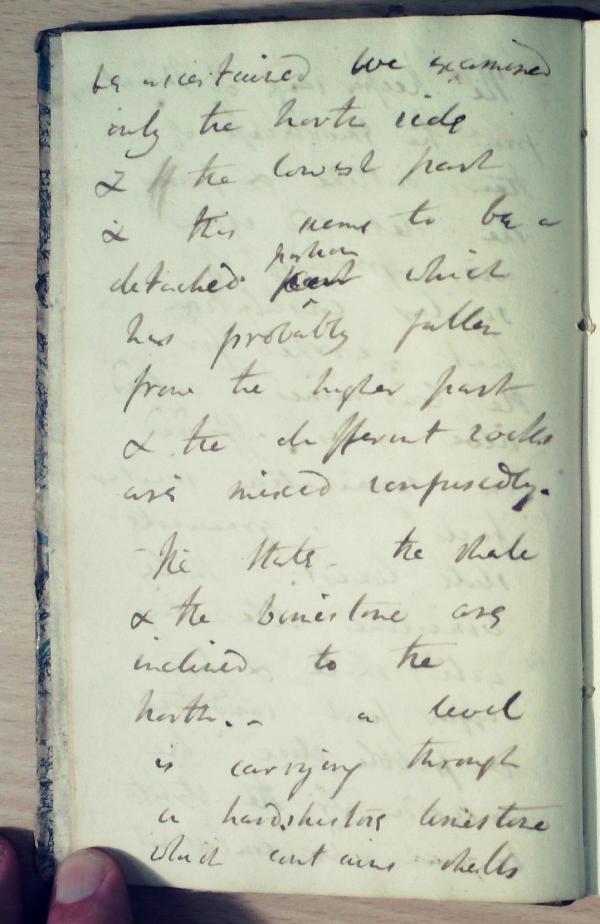 be ascertained we examined
only the north side
& the lowest part
& this seems to be a
detached portion which
has probably fallen
from the higher part
& the different rocks
are mixed confusedly.
The State the shale
& the limestone are
inclined to the
north.. a level
is carrying through
a hard limestone
which contains shells